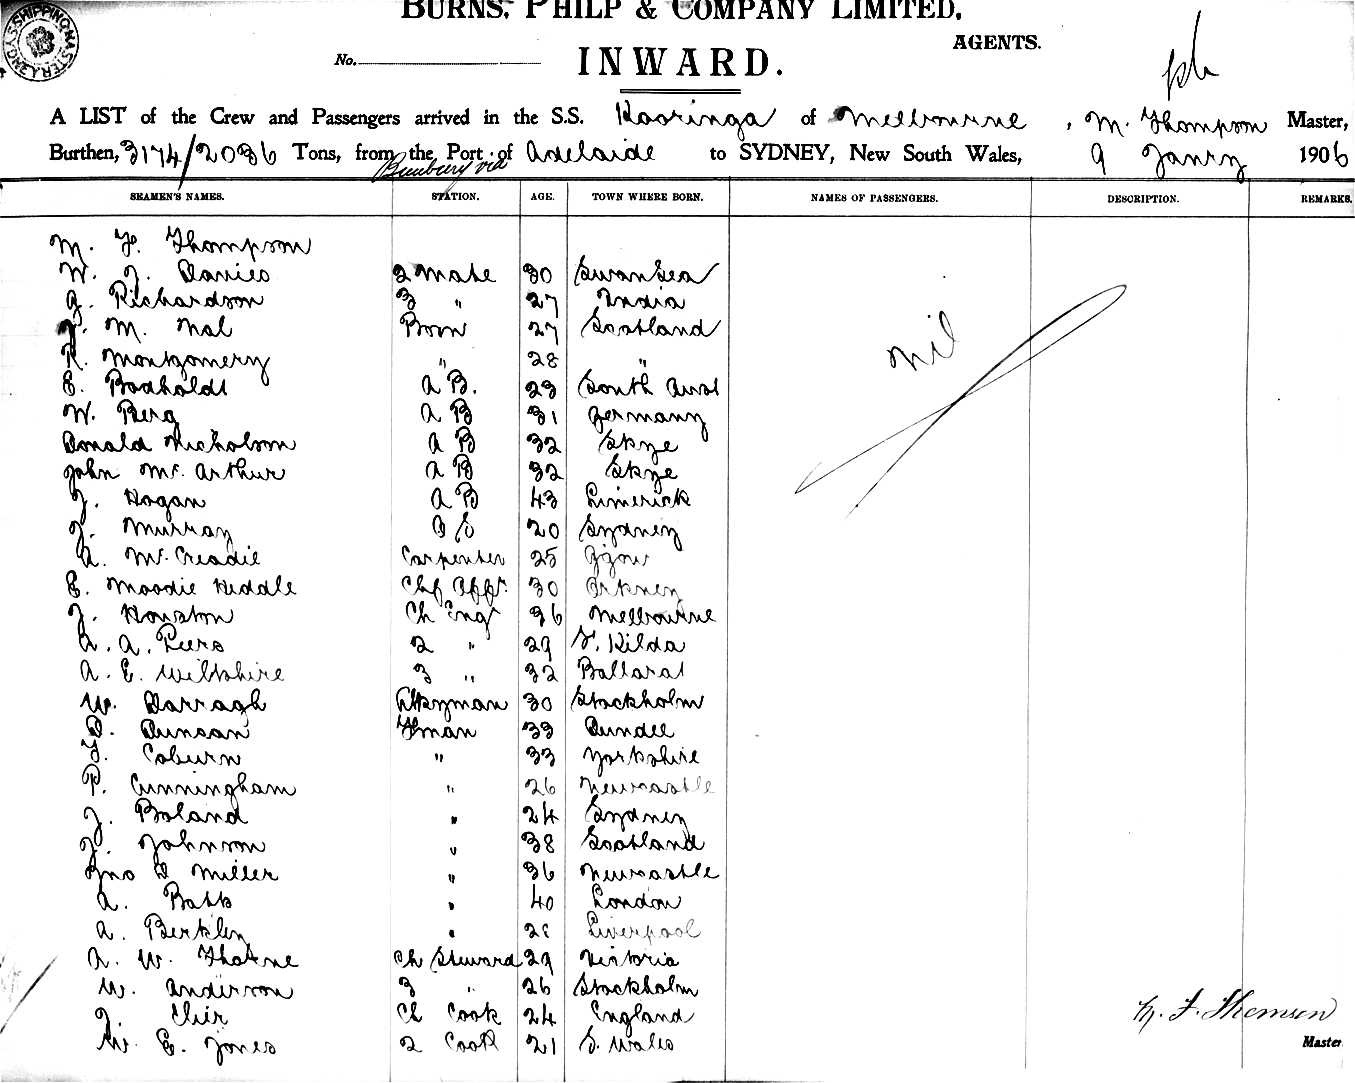 SHIPPING MASTER SYDNEY
BURNS, PHILP & COMPANY LIMITED,
AGENTS.
No.
INWARD.
A LIST of the Crew and Passengers arrived in the S.S. Kooringa of Melbourne, M. Thompson Master,
Burthen, 3174/2036 Tons, from the Port of Adelaide to SYDNEY, New South Wales, 9 Janry 1906
Bunbury via
SEAMEN'S NAMES. STATION. AGE. TOWN WHERE BORN. NAMES OF PASSENGERS. DESCRIPTION. REMARKS.
M. F. Thompson
W. J. Davies 2 Mate 30 Swansea
A. Richardson 3 " 27 India
J. M. Mal Bosn 27 Scotland
R. Montgomery " 28 "
E. Bodholdt A B. 23 South Aust
W. Berg A B 31 Germany
Donald Nicholson A B 32 Skye
John Mc. Arthur A B 32 Skye
J. Hogan A B 43 Limerick
J. Murray O S 20 Sydney
A. Mc. Creadie Carpenter 25 Ggow
E. Moodie Heddle Chf Offr. 30 Orkney
J. Houston Ch Engr 36 Melbourne
A. A. Peers 2 " 29 St. Kilda
A. E. Wiltshire 3 " 32 Ballarat
W. Darragh Dkyman 30 Stockholm
D. Duncan Fman 33 Dundee
F. Coburn " 33 Yorkshire
P. Cunningham " 26 Newcastle
J. Boland " 24 Sydney
J. Johnson " 38 Scotland
Jno D Miller " 36 Newcastle
A. Batt " 40 London
A. Berkley " 28 Liverpool
A. W. Thorne Ch Steward 29 Victoria
W. Anderson 3 " 26 Stockholm
J. Ch Cook 24 England
W. E. Jones 2 Cook 21 S. Wales
Nil
M. F. Thomson
Master